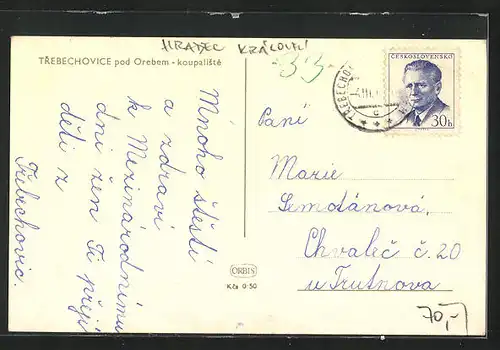 HRADEC KRÁLOVÉ
TŘEBECHOVICE pod Orebem - koupaliště
-33-
TŘEBECHO
-4.III.
c
ČESKOSLOVENSKO
30h
Mnoho štěstí
a zdraví
k Mezinárodnímu
dni žen Ti přejí
děti z
Třebechovic.
ORBIS
Kčs 0·50
Paní
Marie
Semotánová,
Chvaleč č. 20
u Trutnova
70,-